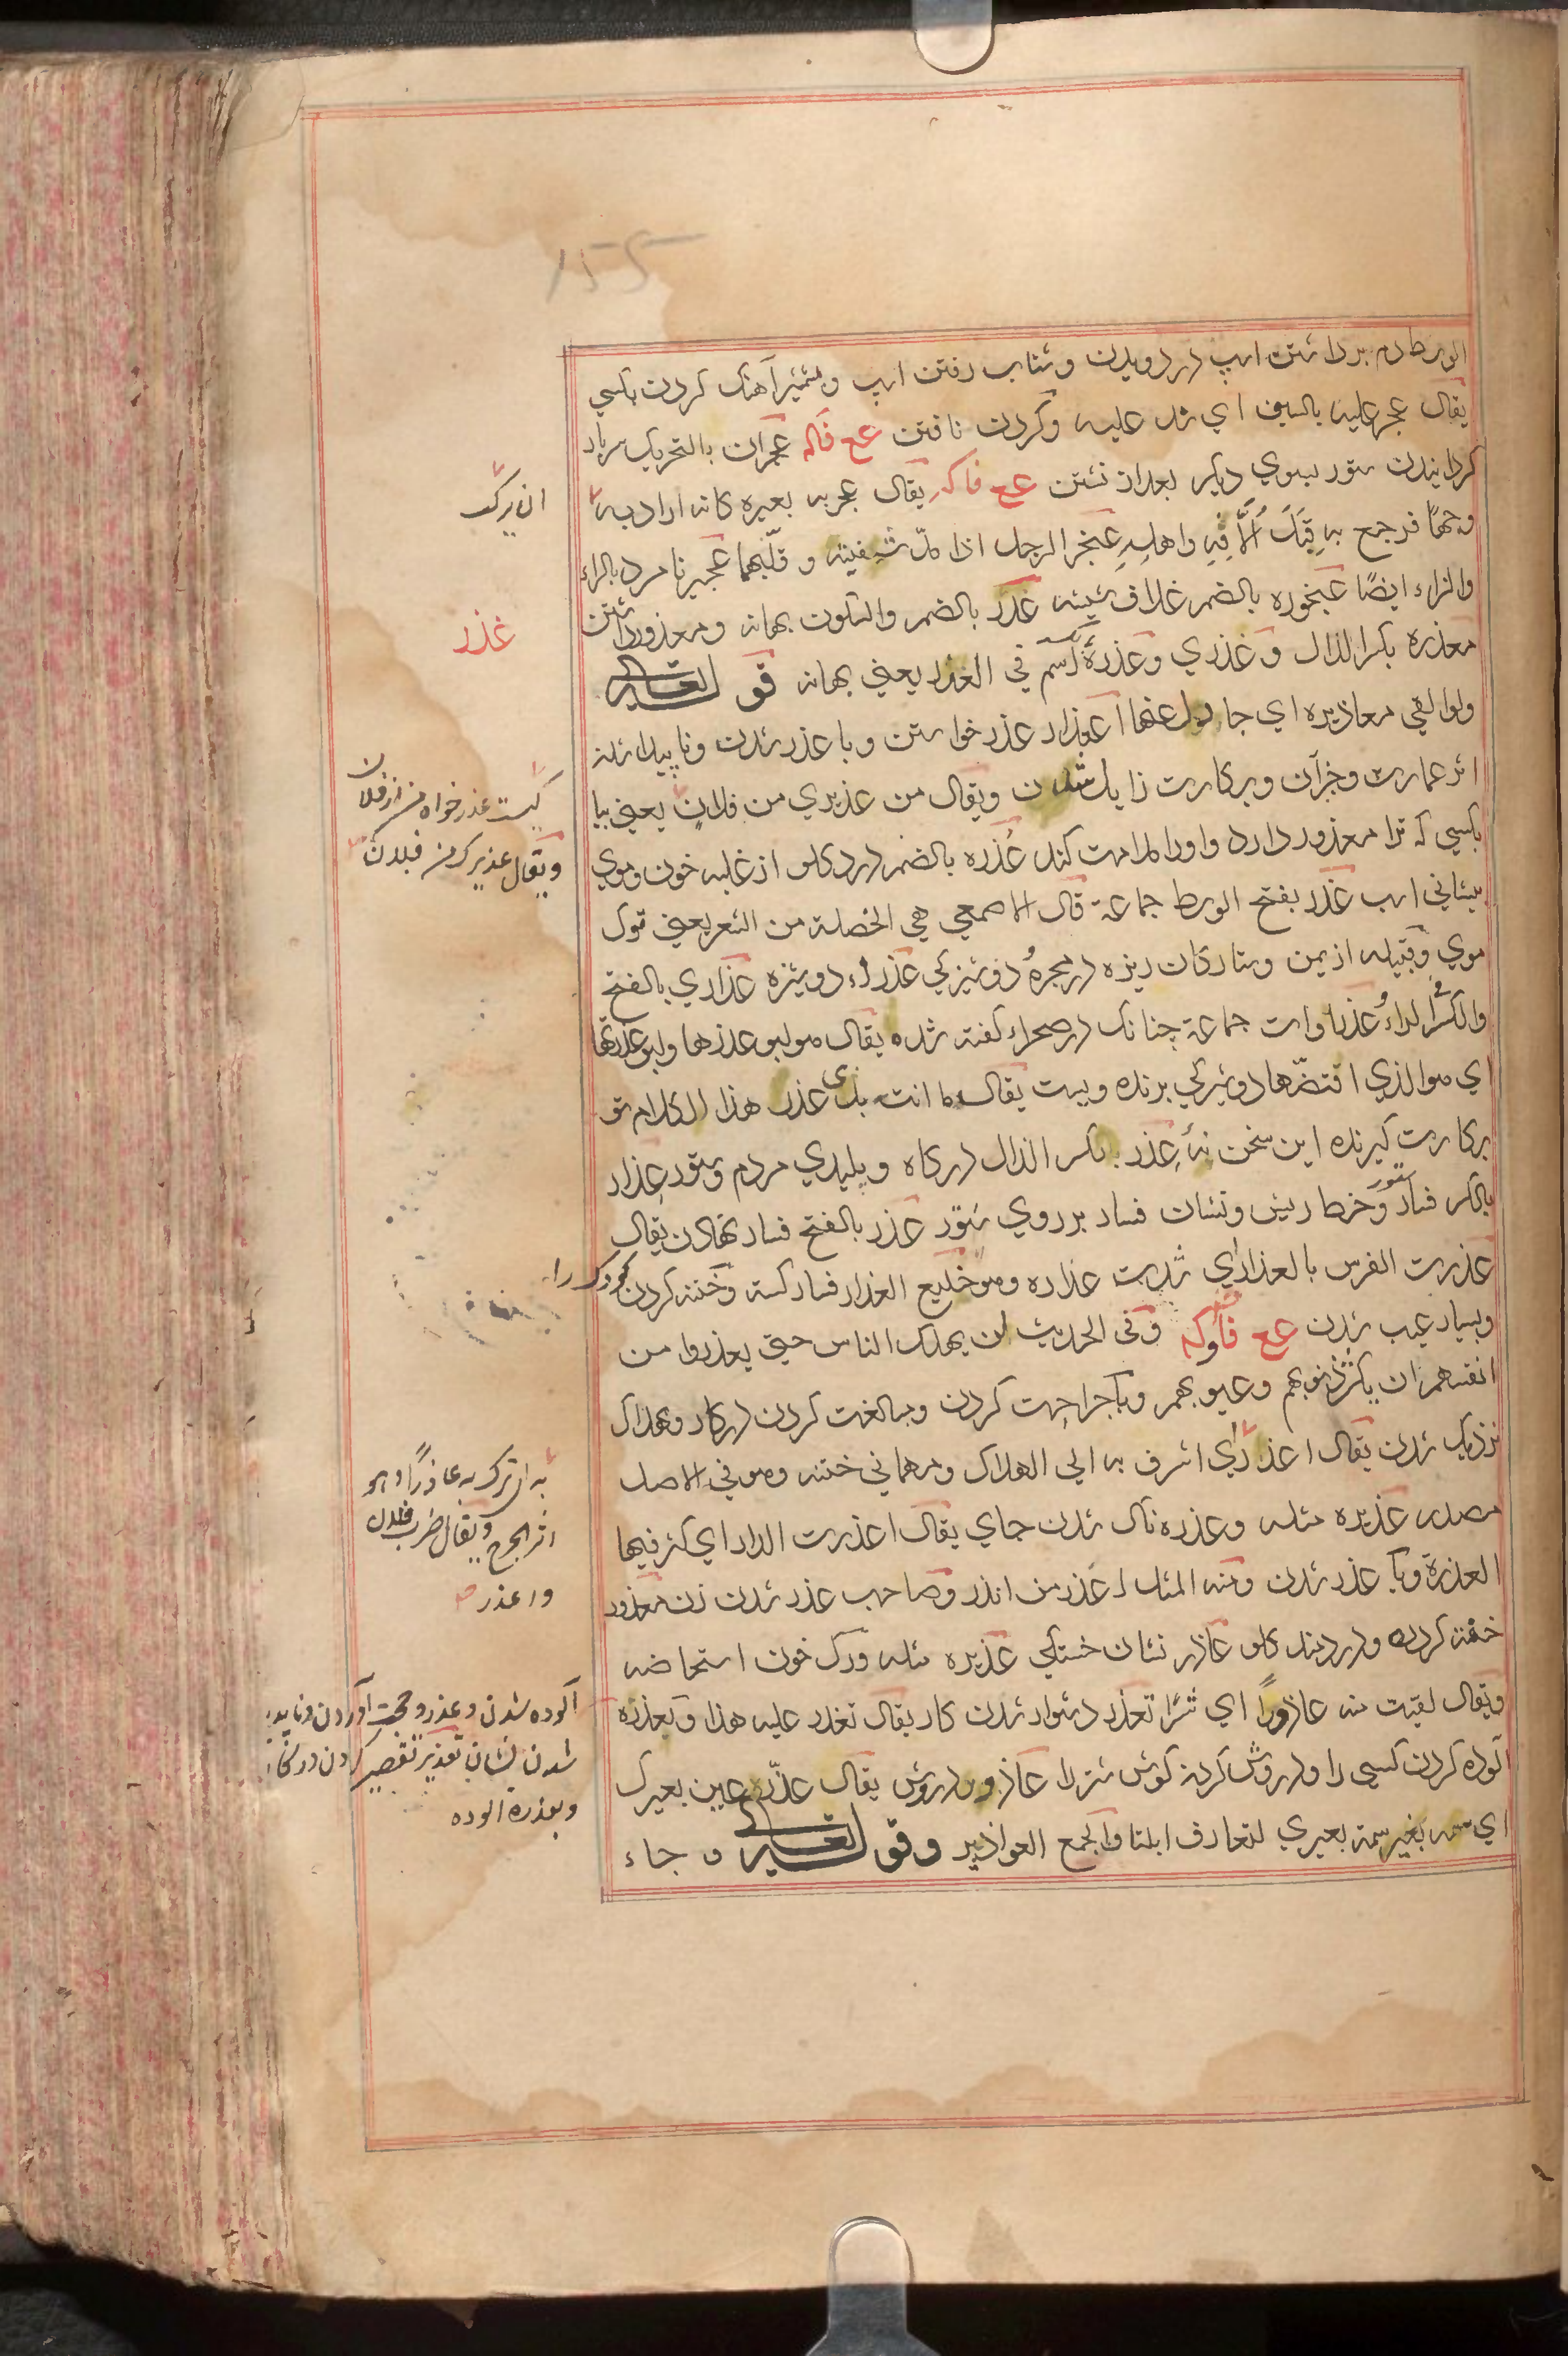 الوسط دم برداشتن اسپ در دویدن و شتاب رفتن اسپ و شمشیر آهنک کردن بکسی
یقال عجر علیه بالسیف ای شد علیه و کردن تافتن عع فاله عجران بالتحریک سر باد
کردانیدن ستور بسوی دیکر بعد از نشتن عع فاکه یقال عجر به بعیره کانه اراد به
وجهًا فرجع به قبل الافه واهله عنجر الرجل اذا مدّ شفتیه و قلّبهما عجیر نامرد بالراء
والزاء ایضًا عنجوره بالضم غلاف شیشه عذر بالضم والسکون بهانه و معذور داشتن
معذره بکسر الذال و عذری و عذرة اسم فی العذر یعنی بهانه قو له تعالی
ولو القی معاذیره ای جادل عنها اعتذار عذر خواستن و با عذر شدن و ناپیدا شدن
اثر عمارت و جز آن و برکارت زایل شدن و یقال من عذیری من فلان یعنی بیا
بکسی که ترا معذور دارد و اورا ملامت کند عُذره بالضم درد کلو از غلبه خون و موی
پیشانی اسب عذر بفتح الوسط جماعة قال الاصمعی هی الخصلة من الشعر یعنی توک
موی و قبیله از یمن و ستارکان ریزه در مجره و دوشیزکی عذراء دوشیزه عذاری بالفتح
والکسر الراء و عذراوات جماعة چنانک در صحراء کفته شده یقال هو ابو عذرها و ابو عذرتها
ای هو الذی افتضّها دوشیزکی برنده و یست یقال ما انت بذی عذر هذا الکلام تو
برکارت کیرنده این سخن نۀ عذر بکسر الذال درکاه و پلیدی مردم و ستور عذار
بالکسر فسار ستور و خط ریش و نشان فسار بر روی ستور عذر بالفتح فسار نهادن یقال
عذرت الفرس بالعذار ای شددت عذاره و هو خلیع العذار فسار کسسته و ختنه کردن کودک را
و بسیار عیب شدن عع فاوکه و فی الحدیث لن یهلک الناس حتی یعذروا من
انفسهم ان یکثر ذنوبهم و عیوبهم و باجراحت کردن و مبالغت کردن در کار و بهلاک
نزدیک شدن یقال اعذر ای اشرف به الی الهلاک و مهمانی ختنه و هو فی الاصل
مصدر عذیره مثله و عذره ناک شدن جای یقال اعذرت الدار ای کثر فیها
العذرة و با عذر شدن و منه المثل اعذر من انذر و صاحب عذر شدن زن معذور
ختنه کرده و دردمند کلو عاذر نشان خستکی عذیره مثله و رک خون استحاضه
و یقال لقیت منه عاذورًا ای شرًّا تعذر دشوار شدن کار یقال تعذر علیه هذا و بعذره
آلوده کردن کسی را و درویش کردن کوش شتر را عاذور درویش یقال عذّر عین بعیرک
ای سمه بغیر سمة بعیری لتعارف ابلنا والجمع العواذیر وقو له تعالی و جاء
ان یرکب
عذر
کیست عذر خواه من از فلان
و یقال عذیرک من فلان
به ای ترک به عاذرًا و هو
اثر الجرح و یقال ضرب فلان
واعذر
آلوده شدن و عذر و حجت آوردن و ناپدید
شدن نشان تعذیر تقصیر کردن در کار
و بعذرة الوده